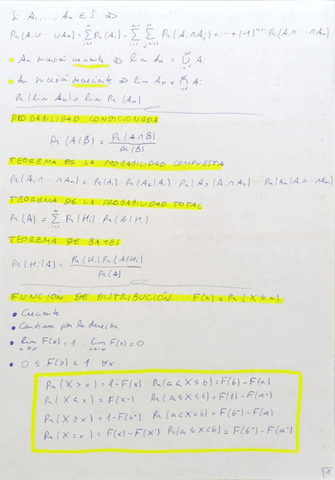 Si A₁, ..., Aₙ ∈ S ⇒
Pr(A₁ ∪ ∪Aₙ) = Σ Pr(Aᵢ) - Σ Σ Pr(Aᵢ ∩ Aⱼ) + ... + (-1)ⁿ⁺¹ Pr(A₁ ∩ ∩ Aₙ)
• Aₙ sucesión creciente ⇒ lim Aₙ = ∪ Aᵢ
• Aₙ sucesión decreciente ⇒ lim Aₙ = ∩ Aᵢ
Pr(lim Aₙ) = lim Pr(Aₙ)
PROBABILIDAD CONDICIONADA
Pr(A|B) = Pr(A∩B) / Pr(B)
TEOREMA DE LA PROBABILIDAD COMPUESTA
Pr(A₁ ∩ ∩ Aₙ) = Pr(A₁) · Pr(A₂|A₁) · Pr(A₃|A₁∩A₂)
TEOREMA DE LA PROBABILIDAD TOTAL
Pr(A) = Σ Pr(Hᵢ) · Pr(A|Hᵢ)
TEOREMA DE BAYES
Pr(Hᵢ|A) = Pr(Hᵢ) Pr(A|Hᵢ) / Pr(A)
FUNCIÓN DE DISTRIBUCIÓN F(x) = Pr(X ≤ x)
• Creciente
• Continua por la derecha
• lim F(x) = 1 lim F(x) = 0
• 0 ≤ F(x) ≤ 1 ∀x
Pr(X > x) = 1 - F(x) Pr(a < X ≤ b) = F(b) - F(a)
Pr(X < x) = F(x⁻) Pr(a ≤ X ≤ b) = F(b) - F(a⁻)
Pr(X ≥ x) = 1 - F(x⁻) Pr(a < X < b) = F(b⁻) - F(a)
Pr(X = x) = F(x) - F(x⁻) Pr(a ≤ X < b) = F(b⁻) - F(a⁻)
1